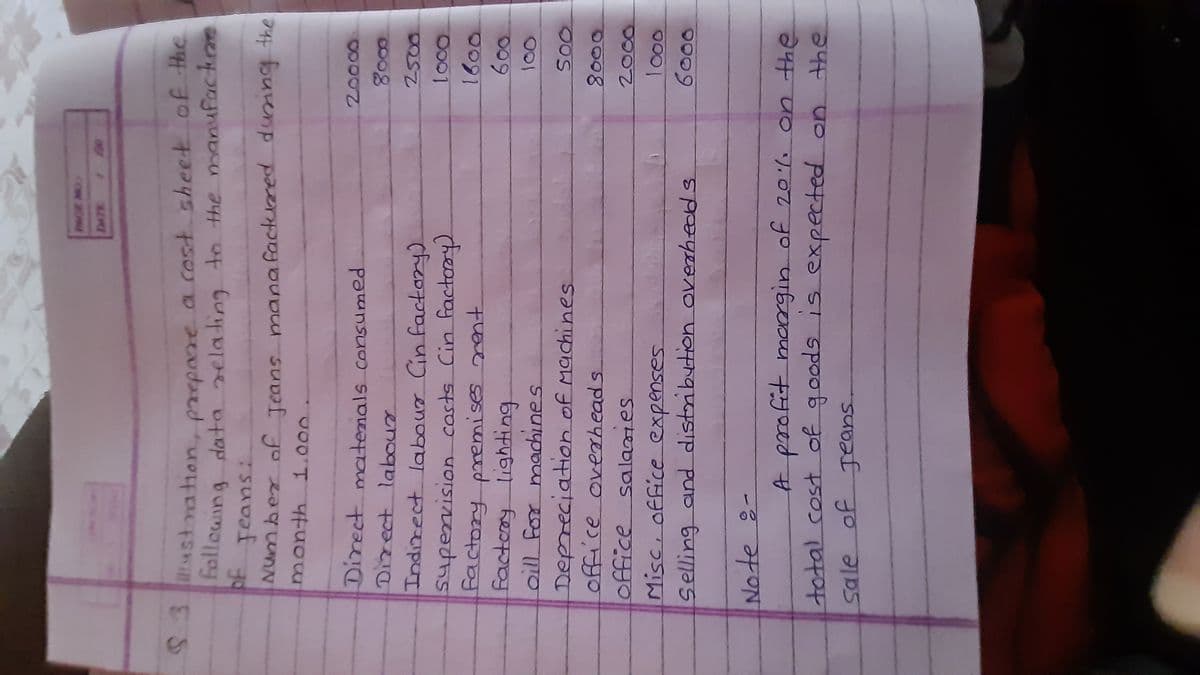 PAGE NO.:
DATE / /
Q 3 Illustration, prepare a cost sheet of the
following data relating to the manufacture
of Jeans:
Number of Jeans manafactured during the
month 1.000.
Direct materials consumed 20000
Direct labour 8000
Indirect labour (in factory) 2500
supervision costs (in factory) 1000
factory premises rent 1600
factory lighting 600
oill for machines 100
Depreciation of Machines 500
office overheads 8000
office salaries 2000
Misc, office expenses 1000
Selling and distribution overheads 6000
Note :-
A profit margin of 20% on the
total cost of goods is expected on the
sale of Jeans.